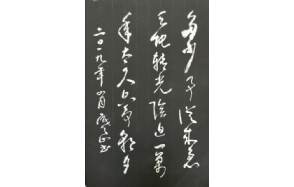 多少事从来急
天地转光阴迫一万
年太久只争朝夕
二〇一九年